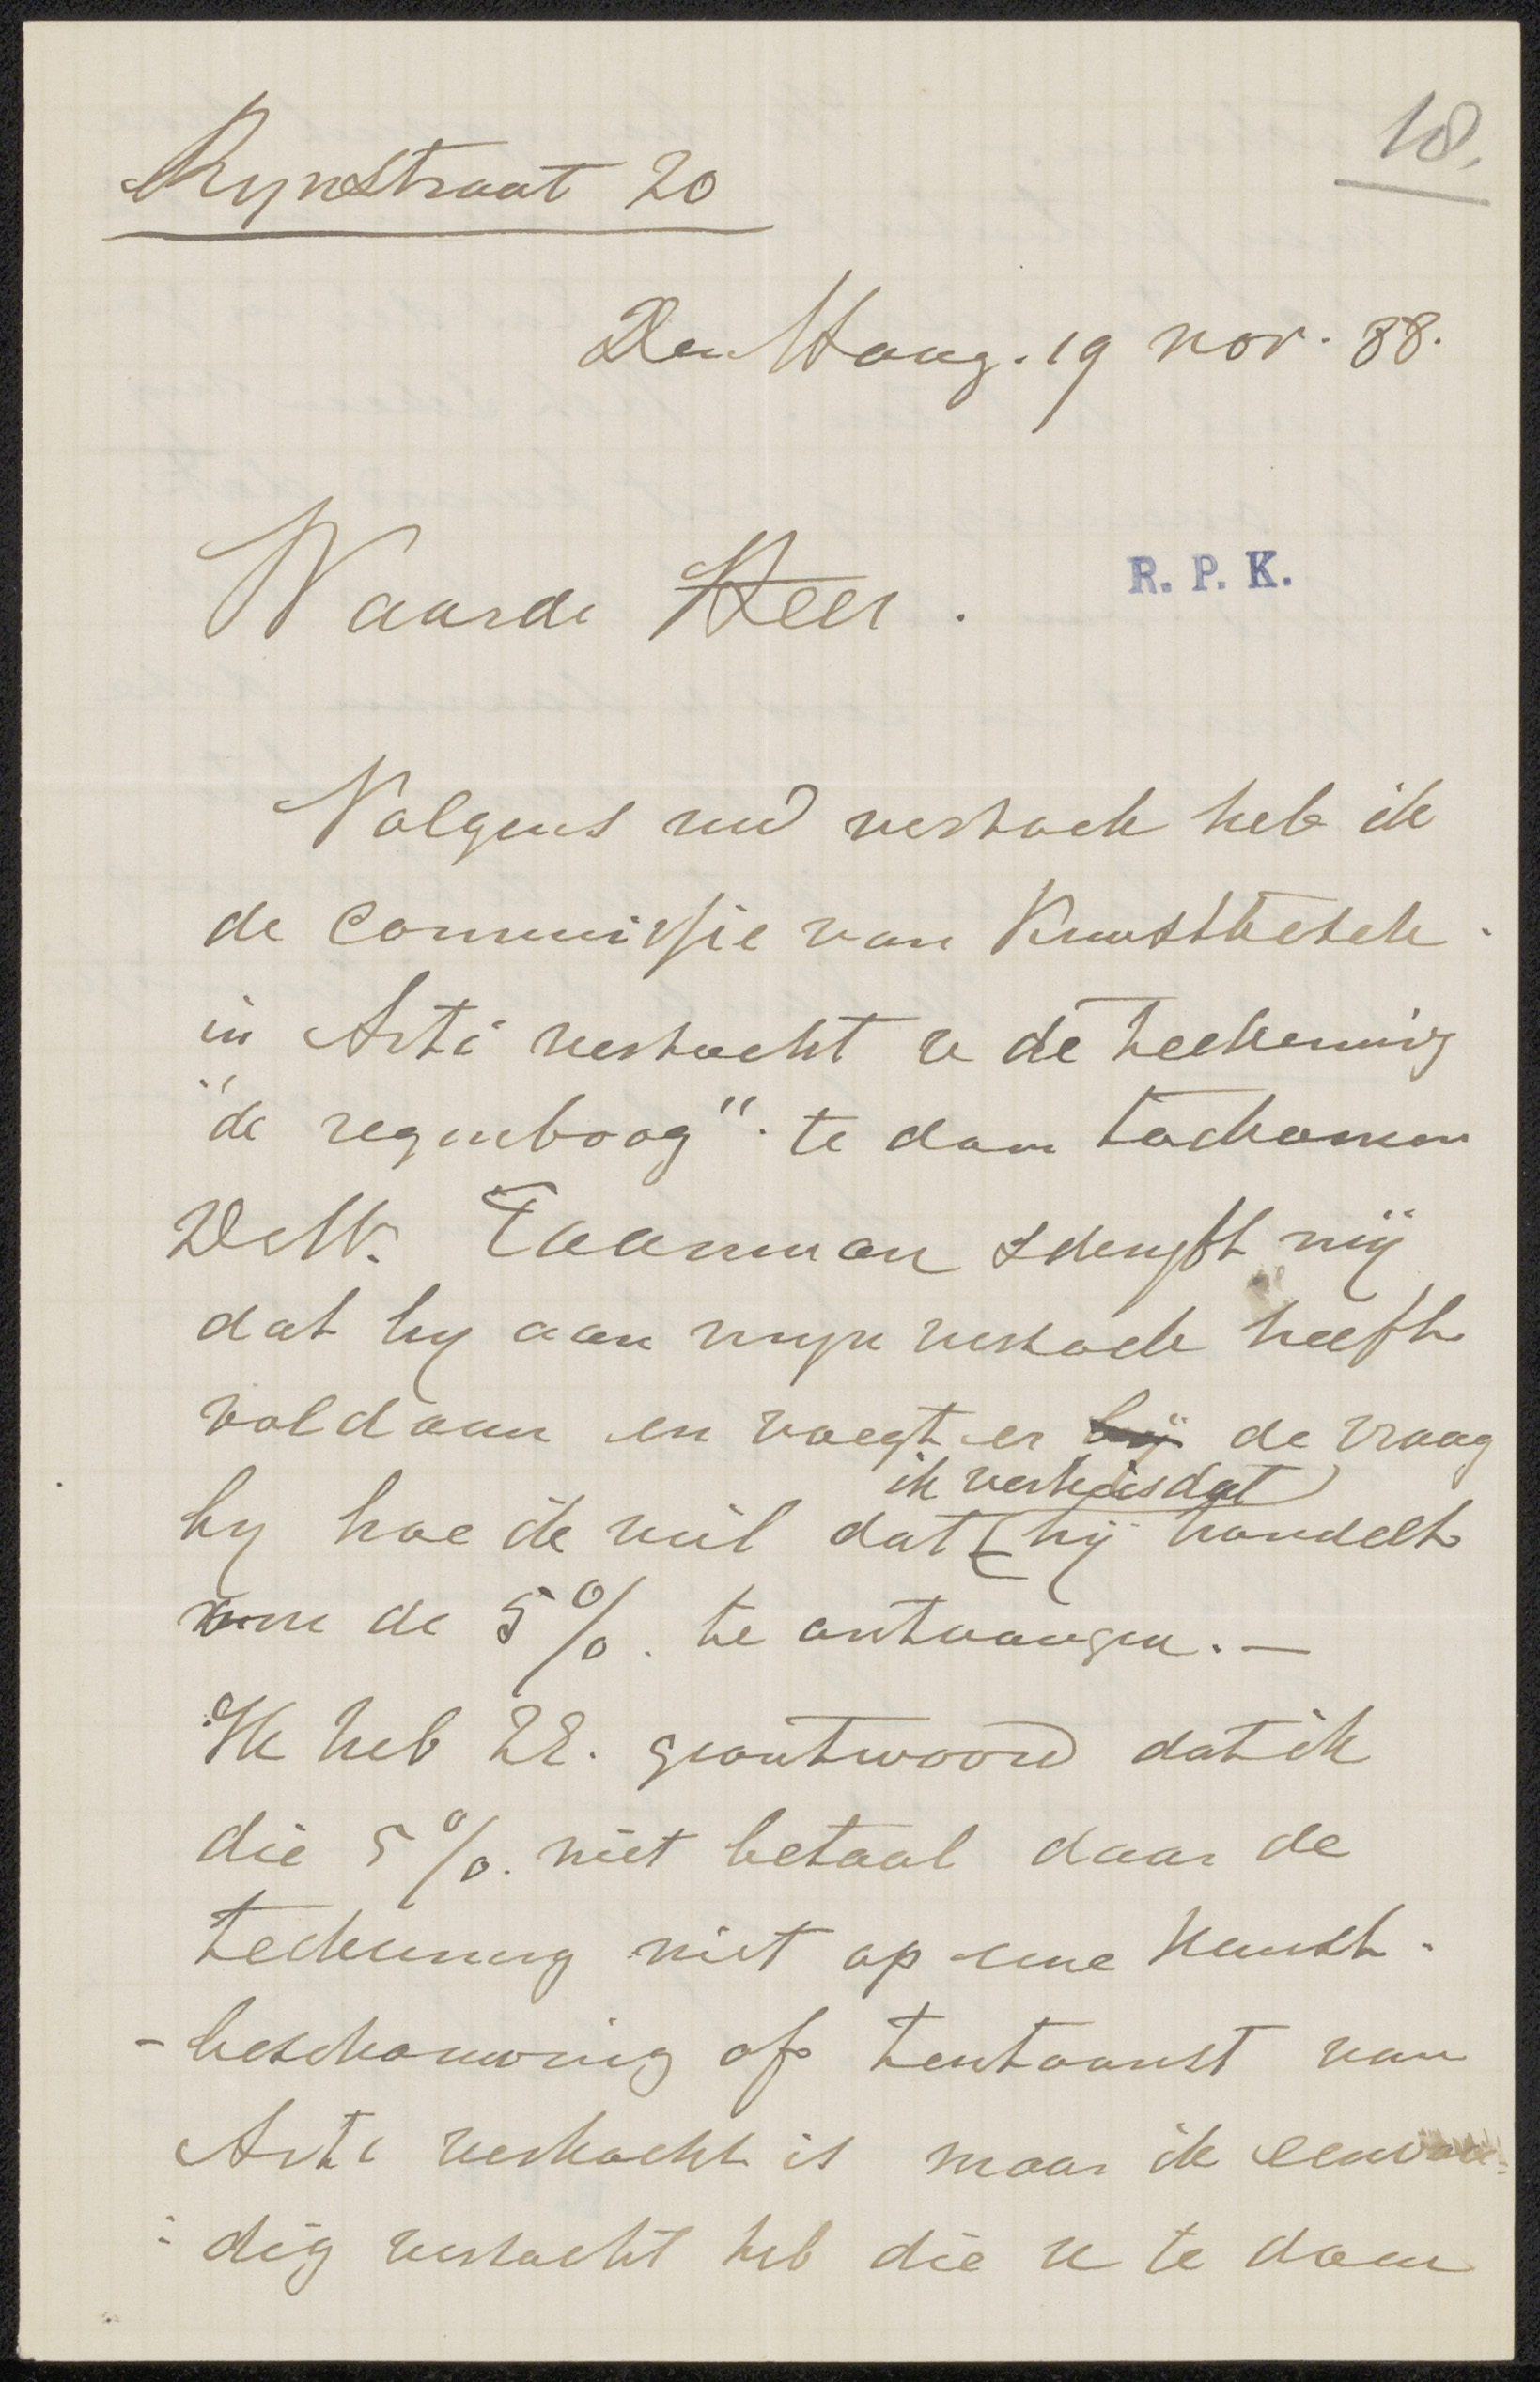 18.
Rynstraat 20
Den Haag. 19 nov. 88.
Waarde Heer.
R. P. K.
Volgens uw verzoek heb ik
de commissie van Kunstbesch.
in Arti verzocht u de teekening
"de regenboog". te doen toekomen
De Hr. Taanman schryft mij
dat hy aan myn verzoek heeft
voldaan en voegt er bij de vraag
ik verkies dat
by hoe ik wil dat hij handelt
om de 5%. te ontvangen. —
Ik heb ZE. geantwoord dat ik
die 5%. niet betaal daar de
teekening niet op eene kunst-
- beschouwing of tentoonst van
Arti verkocht is maar ik eenvou=
: dig verzocht heb die u te doen